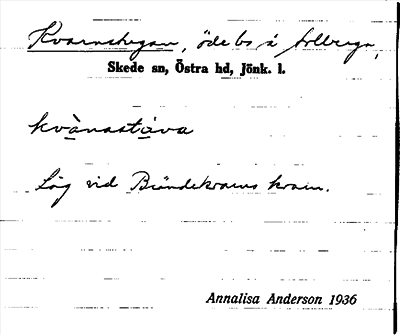 Kvarnstugan, öde bs å Solberga,
Skede sn, Östra hd, Jönk. l.
kvànastòva
Låg vid kvarn.
Annalisa Anderson 1936